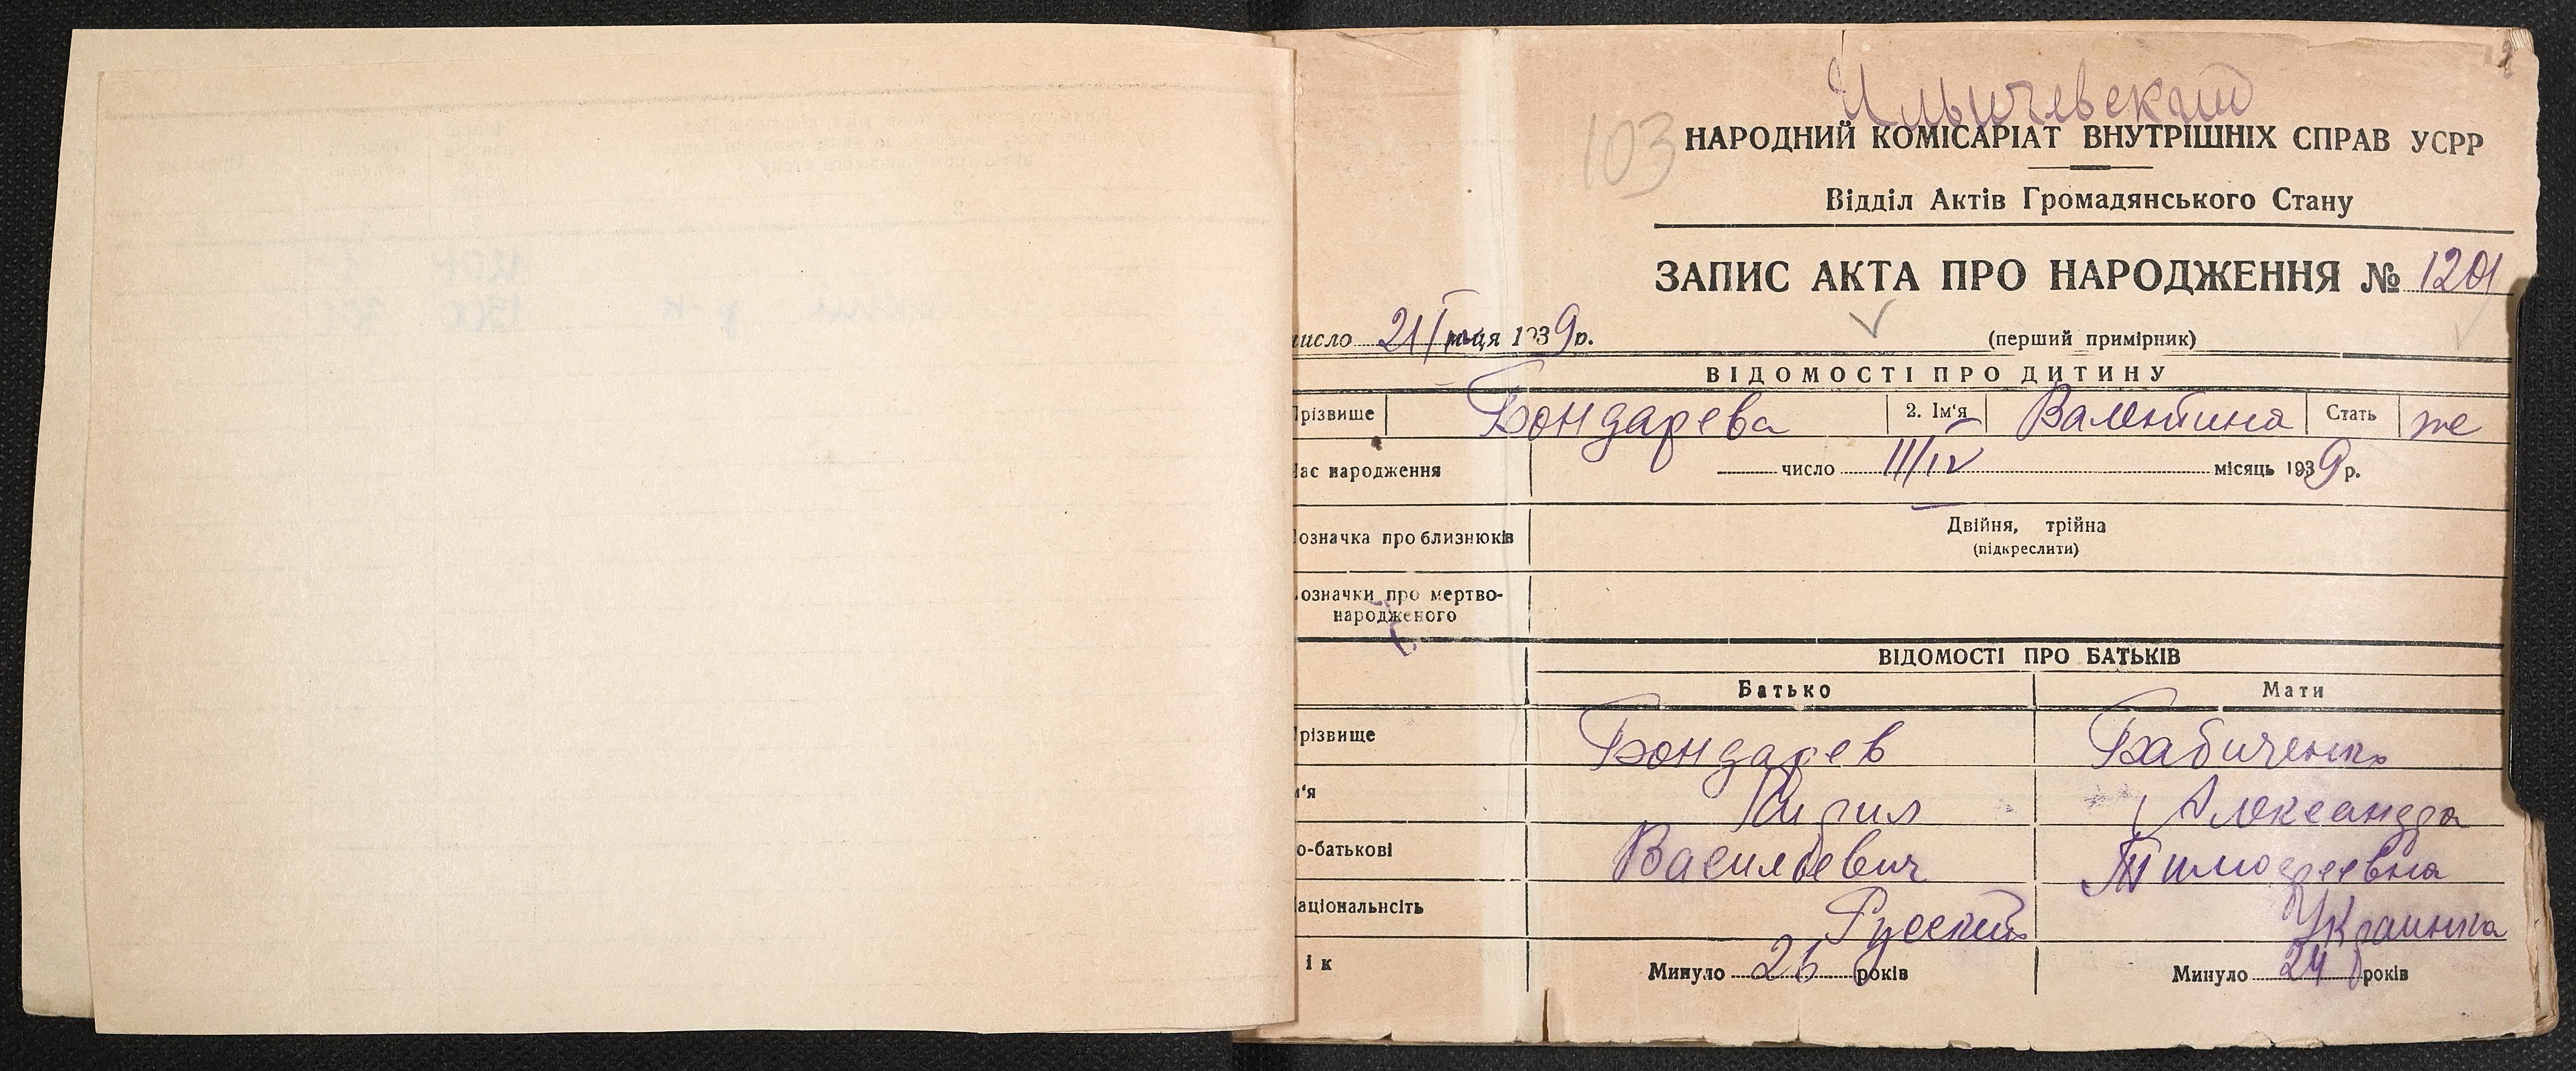 Ильичевский
103
НАРОДНИЙ КОМІСАРІАТ ВНУТРІШНІХ СПРАВ УСРР
Відділ Актів Громадянського Стану
ЗАПИС АКТА ПРО НАРОДЖЕННЯ № 1201
число 21/ м-ця 1939 р. (перший примірник)
ВІДОМОСТІ ПРО ДИТИНУ
різвище Бондарева 2. Ім'я Валентина Стать же
ас народження число 11/IV місяць 1939 р.
означка про близнюків Двійня, трійна
(підкреслити)
означки про мертво-
народженого
ВІДОМОСТІ ПРО БАТЬКІВ
Батько Мати
різвище Бондарев Бабиченко
'я Кирил Александра
о-батькові Васильевич Тимофеевна
аціональнсть Русский Украинка
ік Минуло 26 років Минуло 24 років